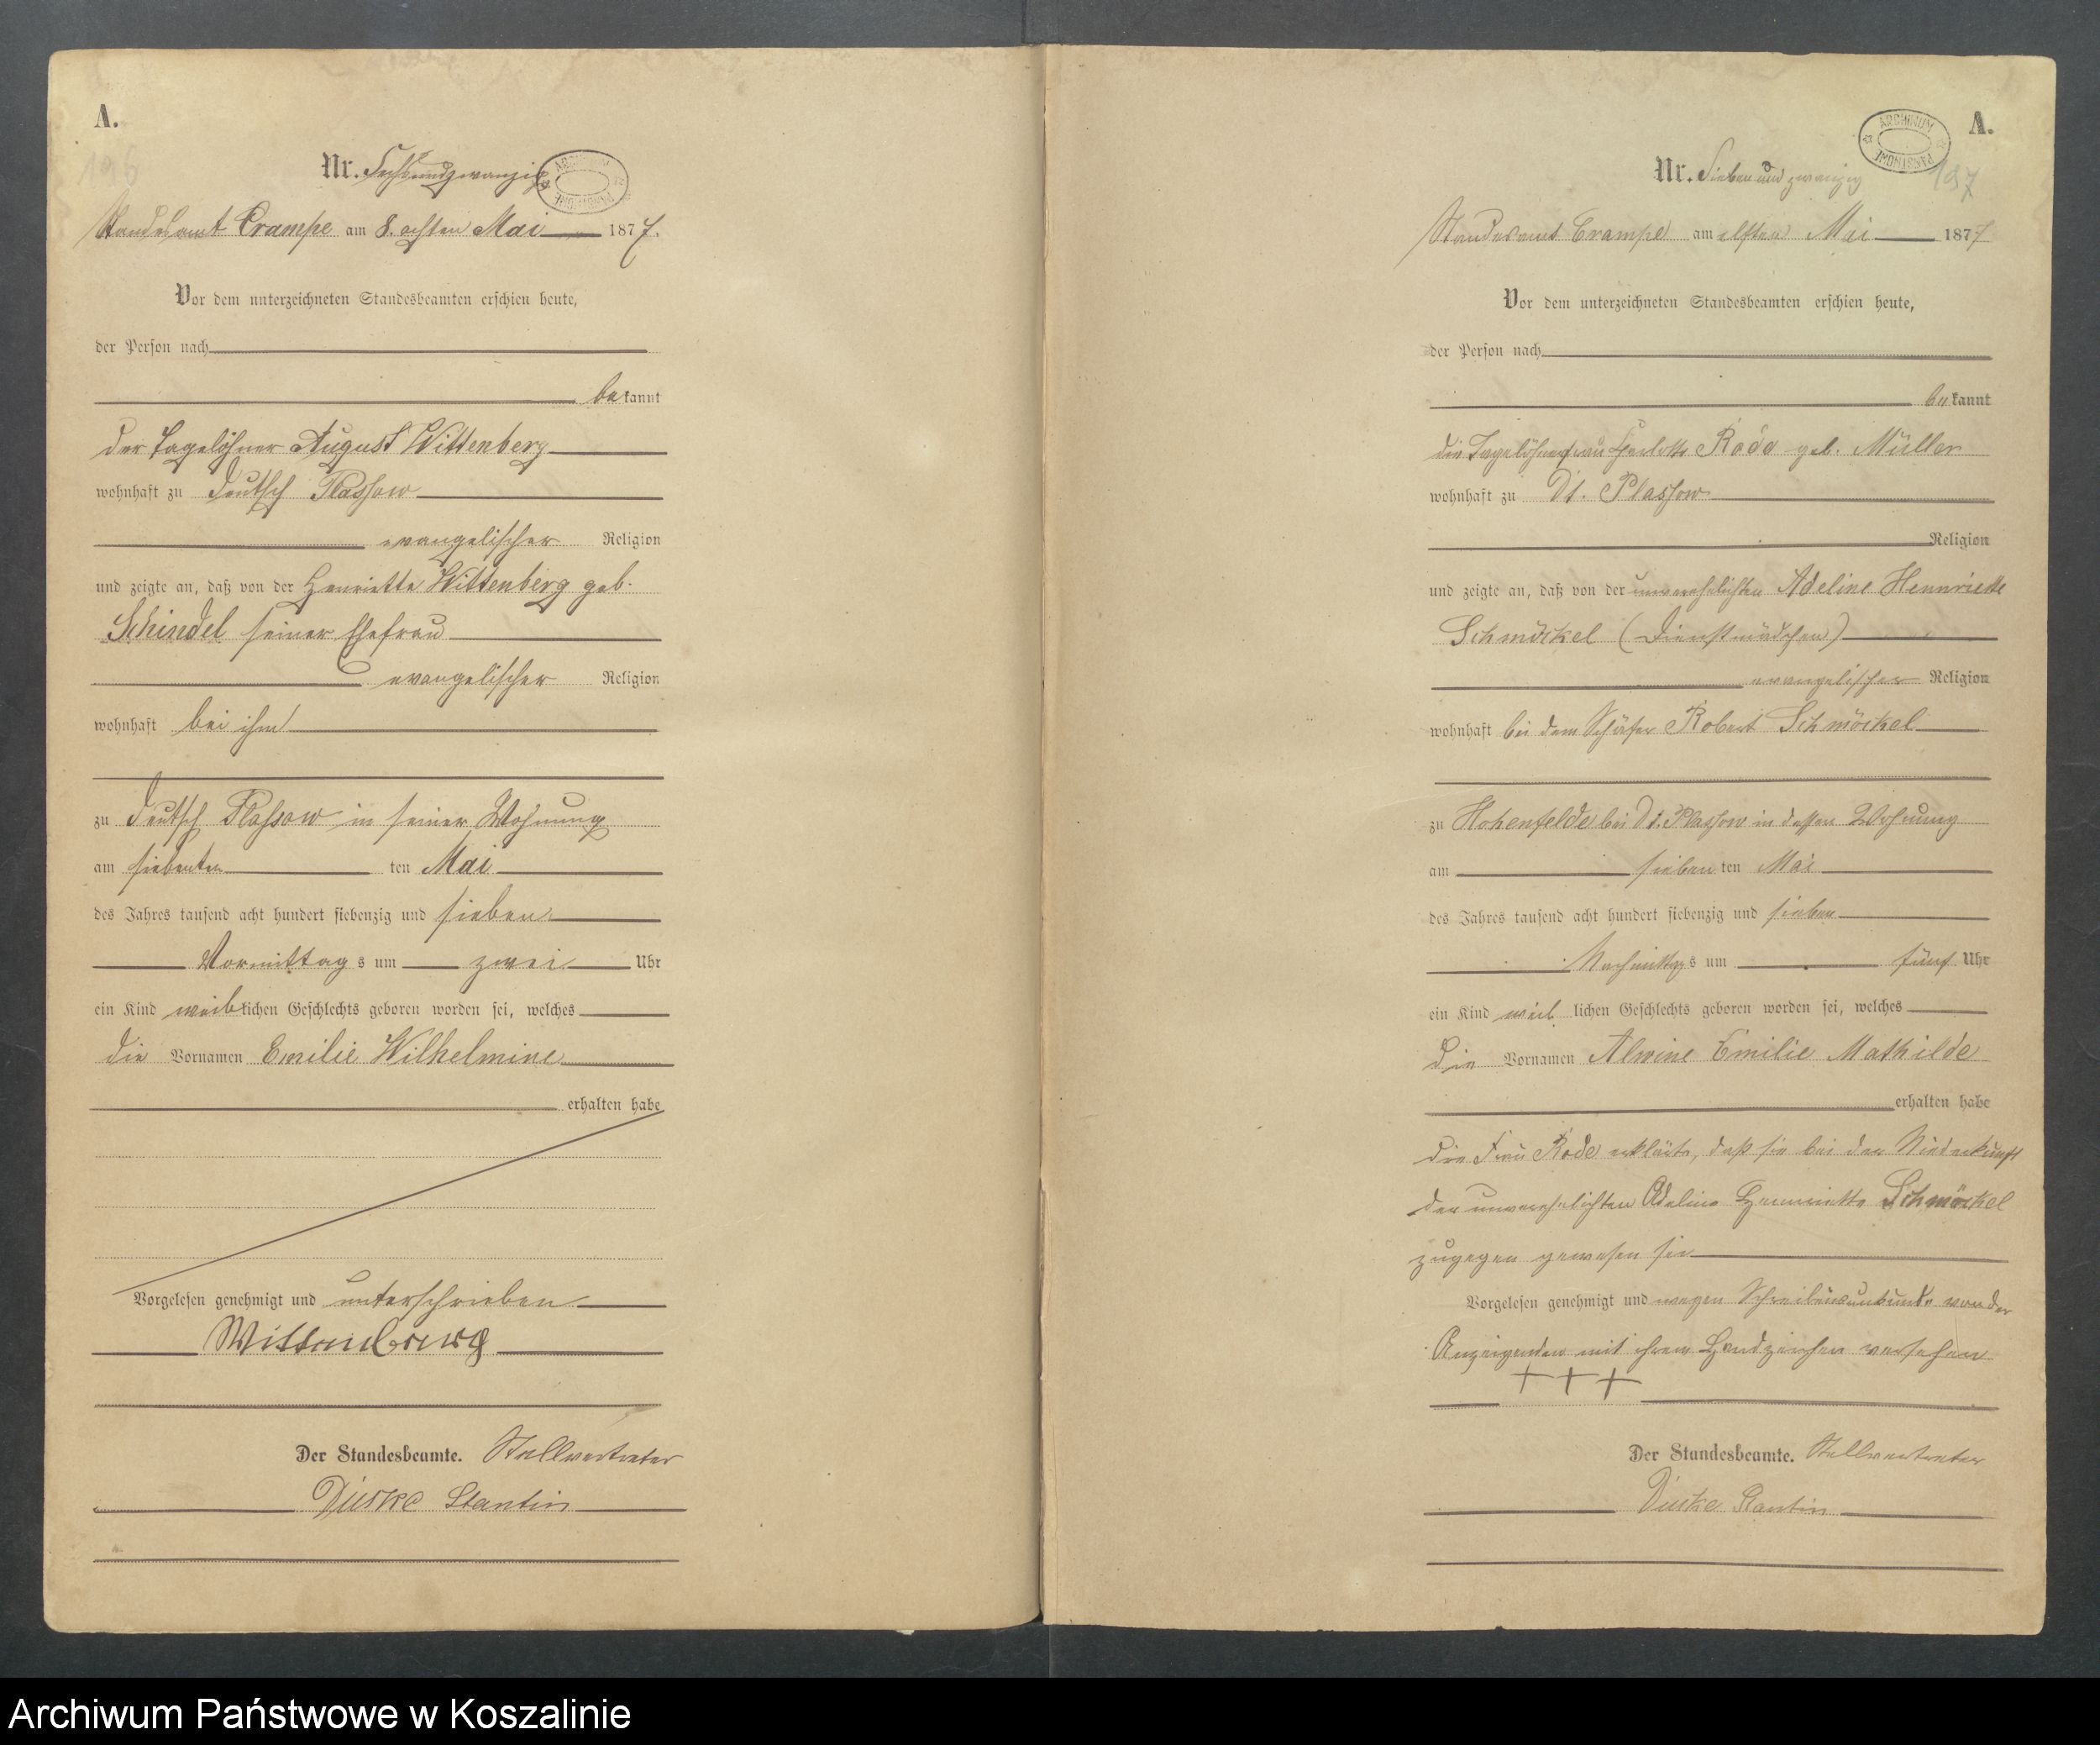 A.
196
Nr. Sechsundzwanzig.
ARCHIWUM PAŃSTWOWE
Standesamt Crampe am 8. achten Mai 1877.
Vor dem unterzeichneten Standesbeamten erschien heute,
der Person nach
bekannt
der Tagelöhner August Wittenberg
wohnhaft zu Deutsch Plassow
evangelischer Religion
und zeigte an, daß von der Henriette Wittenberg geb.
Schindel seiner Ehefrau
evangelischer Religion
wohnhaft bei ihm
zu Deutsch Plassow in seiner Wohnung
am siebenten ten Mai
des Jahres tausend acht hundert siebenzig und sieben
Vormittags um zwei Uhr
ein Kind weiblichen Geschlechts geboren worden sei, welches
die Vornamen Emilie Wilhelmine
erhalten habe
Vorgelesen genehmigt und unterschrieben
Wittenberg
Der Standesbeamte. Stellvertreter
Stantin
A.
197
ARCHIWUM PAŃSTWOWE
Nr. Sieben und zwanzig
Standesamt Crampe am elften Mai 1877
Vor dem unterzeichneten Standesbeamten erschien heute,
der Person nach
bekannt
die Tagelöhnerfrau Charlotte Rode geb. Müller
wohnhaft zu Dt. Plassow
Religion
und zeigte an, daß von der unverehelichten Adeline Hennriette
Schmöckel (Dienstmädchen)
evangelischer Religion
wohnhaft bei dem Schäfer Robert Schmöckel
zu Hohenfelde bei Dt. Plassow in dessen Wohnung
am siebenten Mai
des Jahres tausend acht hundert siebenzig und sieben
Nachmittags um fünf Uhr
ein Kind weiblichen Geschlechts geboren worden sei, welches
die Vornamen Alwine Emilie Mathilde
erhalten habe
Die Frau Rode erklärte, daß sie bei der Niederkunft
der unverehelichten Adeline Hennriette Schmöckel
zugegen gewesen sei
Vorgelesen genehmigt und wegen Schreibensunkunde von der
Anzeigenden mit ihrem Handzeichen versehen
+ + +
Der Standesbeamte. Stellvertreter
Stantin
Archiwum Państwowe w Koszalinie